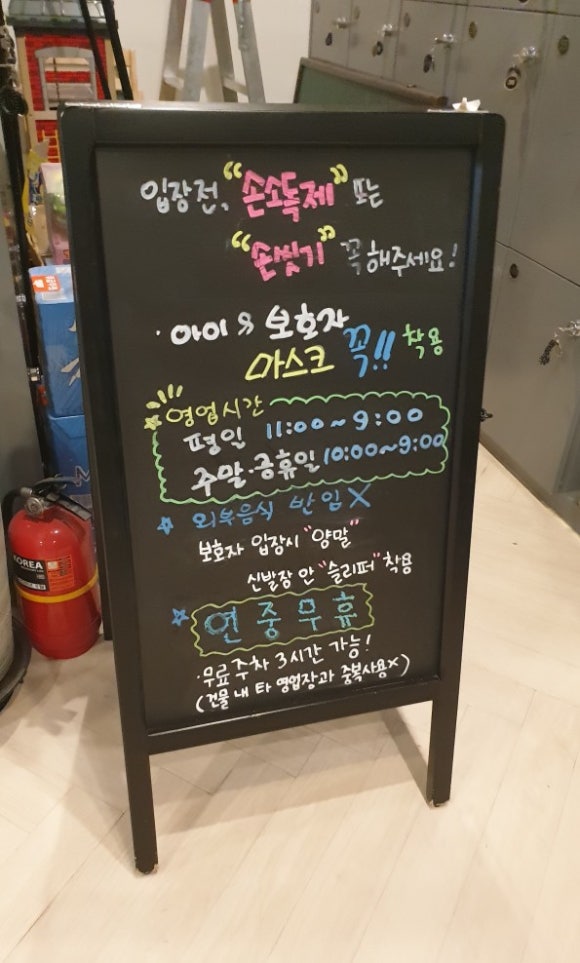 입장전, "손소독제" 또는
"손씻기" 꼭 해주세요!
· 아이 와 보호자
마스크 꼭!! 착용
영업시간
평일 11:00~9:00
주말·공휴일 10:00~9:00
외부음식 반입 X
보호자 입장시 "양말"
신발장 안 "슬리퍼" 착용
연중무휴
·무료주차 3시간 가능!
(건물 내 타 영업장과 중복사용X)
KOREA